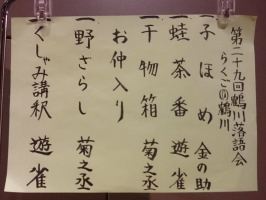 第二十九回鶴川落語会
らくご@鶴川
一子ほめ 金の助
一蛙茶番 遊雀
一干物箱 菊之丞
お仲入り
一野ざらし 菊之丞
一くしゃみ講釈 遊雀